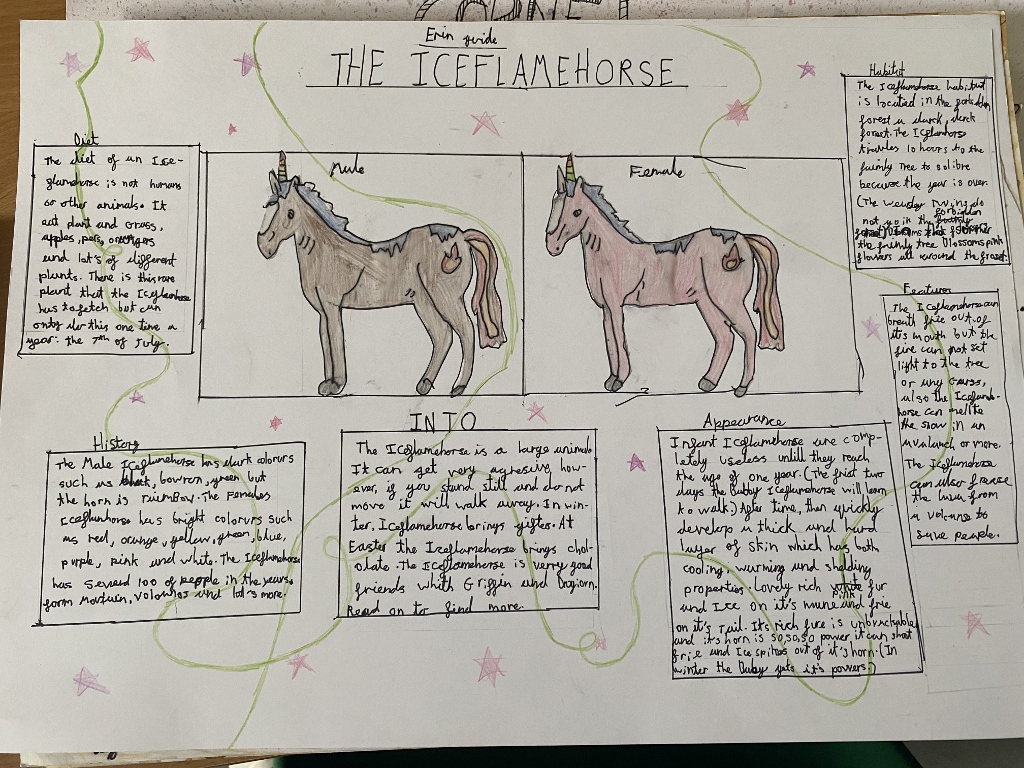 Erin guide
THE ICEFLAMEHORSE
Diet
The diet of an Ice-
flamehorse is not humans
or other animals. It
eat plant and Grass,
apples, pers, orangers
and lot's of different
plants. There is this rare
plant that the Iceflamehorse
has to fetch but can
only do this one time a
year: the 7th of July.
Male
Female
Habitat
The Iceflamehorse habitat
is locatied in the forbidden
forest a darck, darck
forest. The Iceflamehorse
travles 10 hours to the
faimly Tree to
because the year is over.
(The
not go in the forbidden
the faimly tree blossoms pink
flowers all around the forest.
Features
The Iceflamehorse can
breath fire out of
it's mouth but the
fire can not set
light to the tree
or any Grass,
also the Iceflame-
horse can melte
the snow in an
avaland or more.
The Iceflamehorse
can also freeze
the lava from
a volcano to
save people.
History
The Male Iceflamehorse has dark colours
such as black, bowron, green but
the horn is rainbow. The Females
Iceflamhorse has bright colours such
as red, orange, yellow, green, blue,
purple, pink and white. The Iceflamehorse
has saved 100 of people in the years
form Mautain, Volcanos and lot's more.
INTO
The Iceflamehorse is a large animal
It can get very agresive, how-
ever, if you stand still and do not
move it will walk away. In win-
ter, Iceflamehorse brings giftes. At
Easter the Iceflamehorse brings choc-
olate. The Iceflamehorse is verry good
friends whith Griffin and Dogiorn.
Read on to find more.
Appearance
Infant Iceflamehorse are comp-
letely useless untill they reach
the age of one year. (The frist two
days the Babby Iceflamehorse will learn
to walk.) After time, than quickly
develop a thick and hard
layer of skin which has both
cooling, warming and shelding
properties Lovely rich pink fur
and Ice on it's mane and frie
on it's tail. It's rich fure is unbrackable
and it's horn is so,so,so power it can shoot
frie and Ice spikes out of it's horn. (In
winter the Baby gets it's powers.)